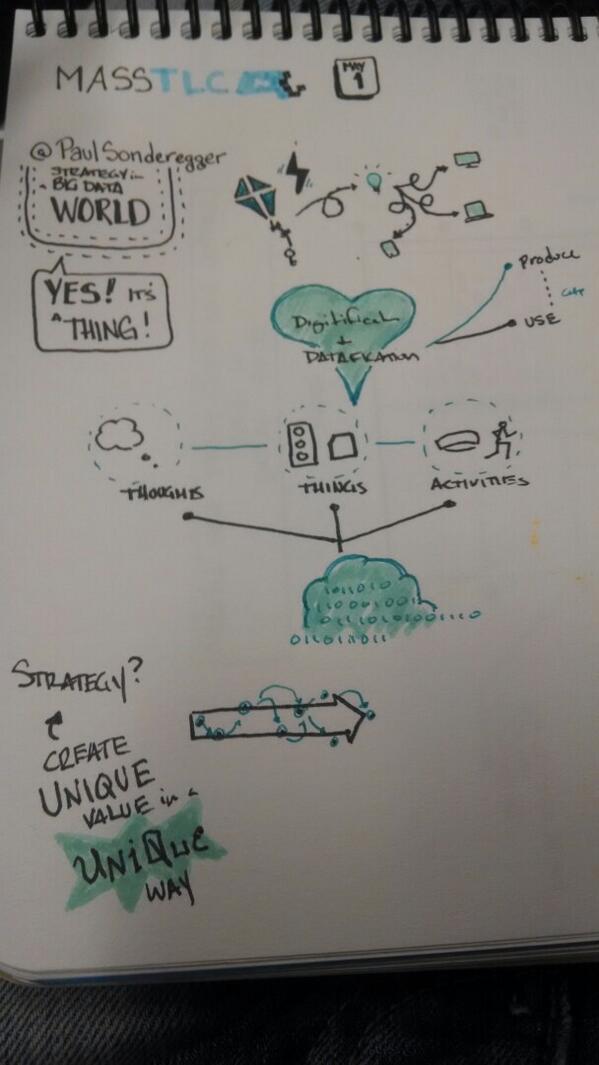 MASSTLC
MAY
1
@PaulSonderegger
STRATEGY in
a BIG DATA
WORLD
YES! IT'S
A THING!
Produce
USE
+
DATAFICATION
THOUGHTS
THINGS
ACTIVITIES
011010
STRATEGY?
CREATE
UNIQUE
VALUE in a
UNIQUE
WAY